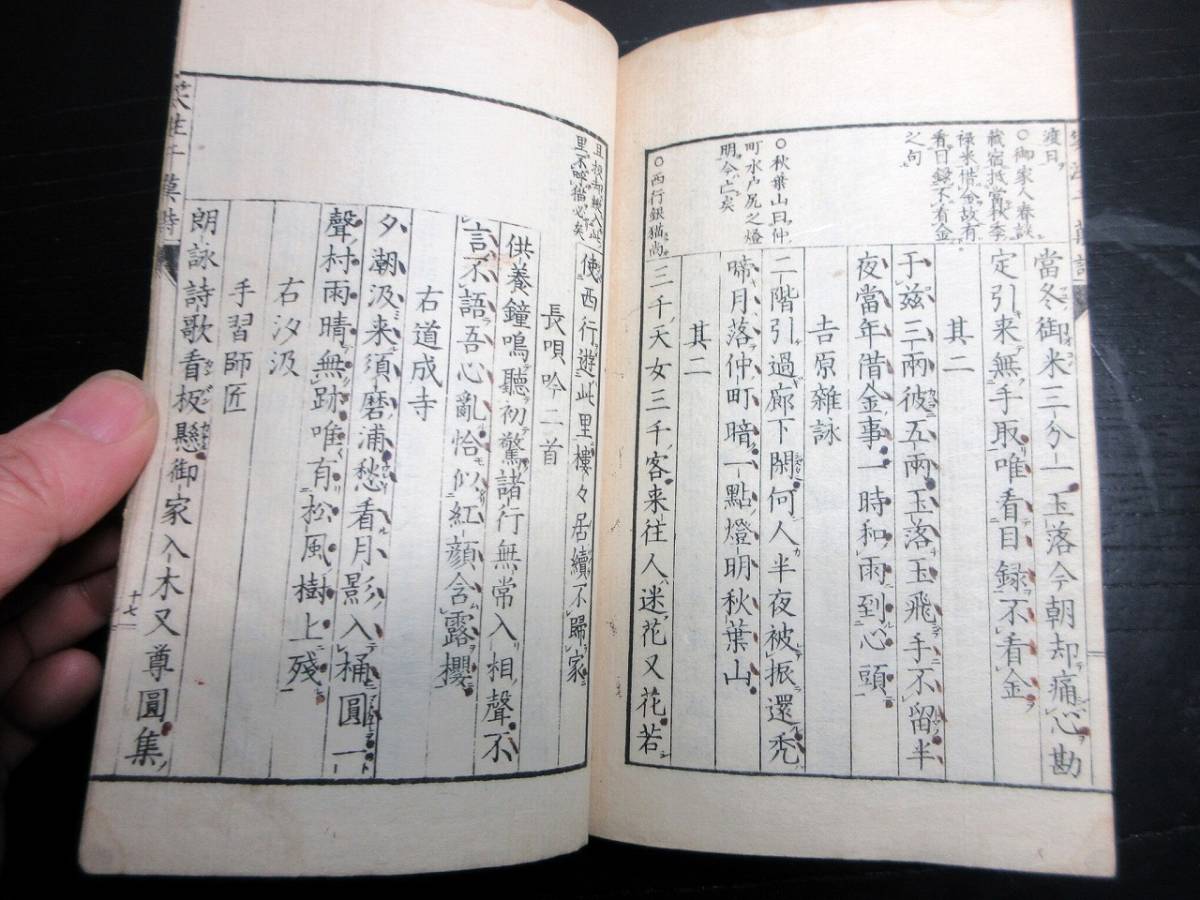 渡日
○御家人春談
蔵宿抵當秋季
禄米借金故有
看目録不有金
之句
當冬御米三分一玉落今朝却痛心勘
定引来無手取唯看目録不看金
其二
于玆三兩彼五兩玉落玉飛手不留半
夜當年借金事一時和雨到心頭
吉原雜詠
○秋葉山曰仲
町水戸尻之燈
明今亡矣
二階引過廊下閑何人半夜被振還禿
啼月落仲町暗一點燈明秋葉山
其二
○西行銀猫尚
三千天女三千客来往人迷花又花若
且投却況入此
里不呼猫必矣
使西行遊此里樓々居續不歸家
長唄吟二首
供養鐘鳴聽初驚諸行無常入相聲不
言不語吾心亂恰似紅顔含露櫻
右道成寺
夕潮汲来須磨浦愁看月影入桶圓一
聲村雨晴無跡唯有松風樹上殘
右汐汲
手習師匠
朗詠詩歌看板懸御家入木又尊圓集
十七